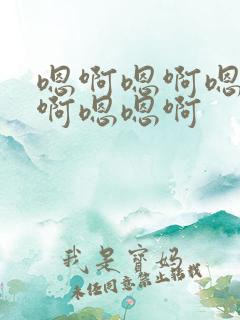 嗯啊嗯啊嗯
啊嗯嗯啊
我是寶妈
未经同意禁止转载